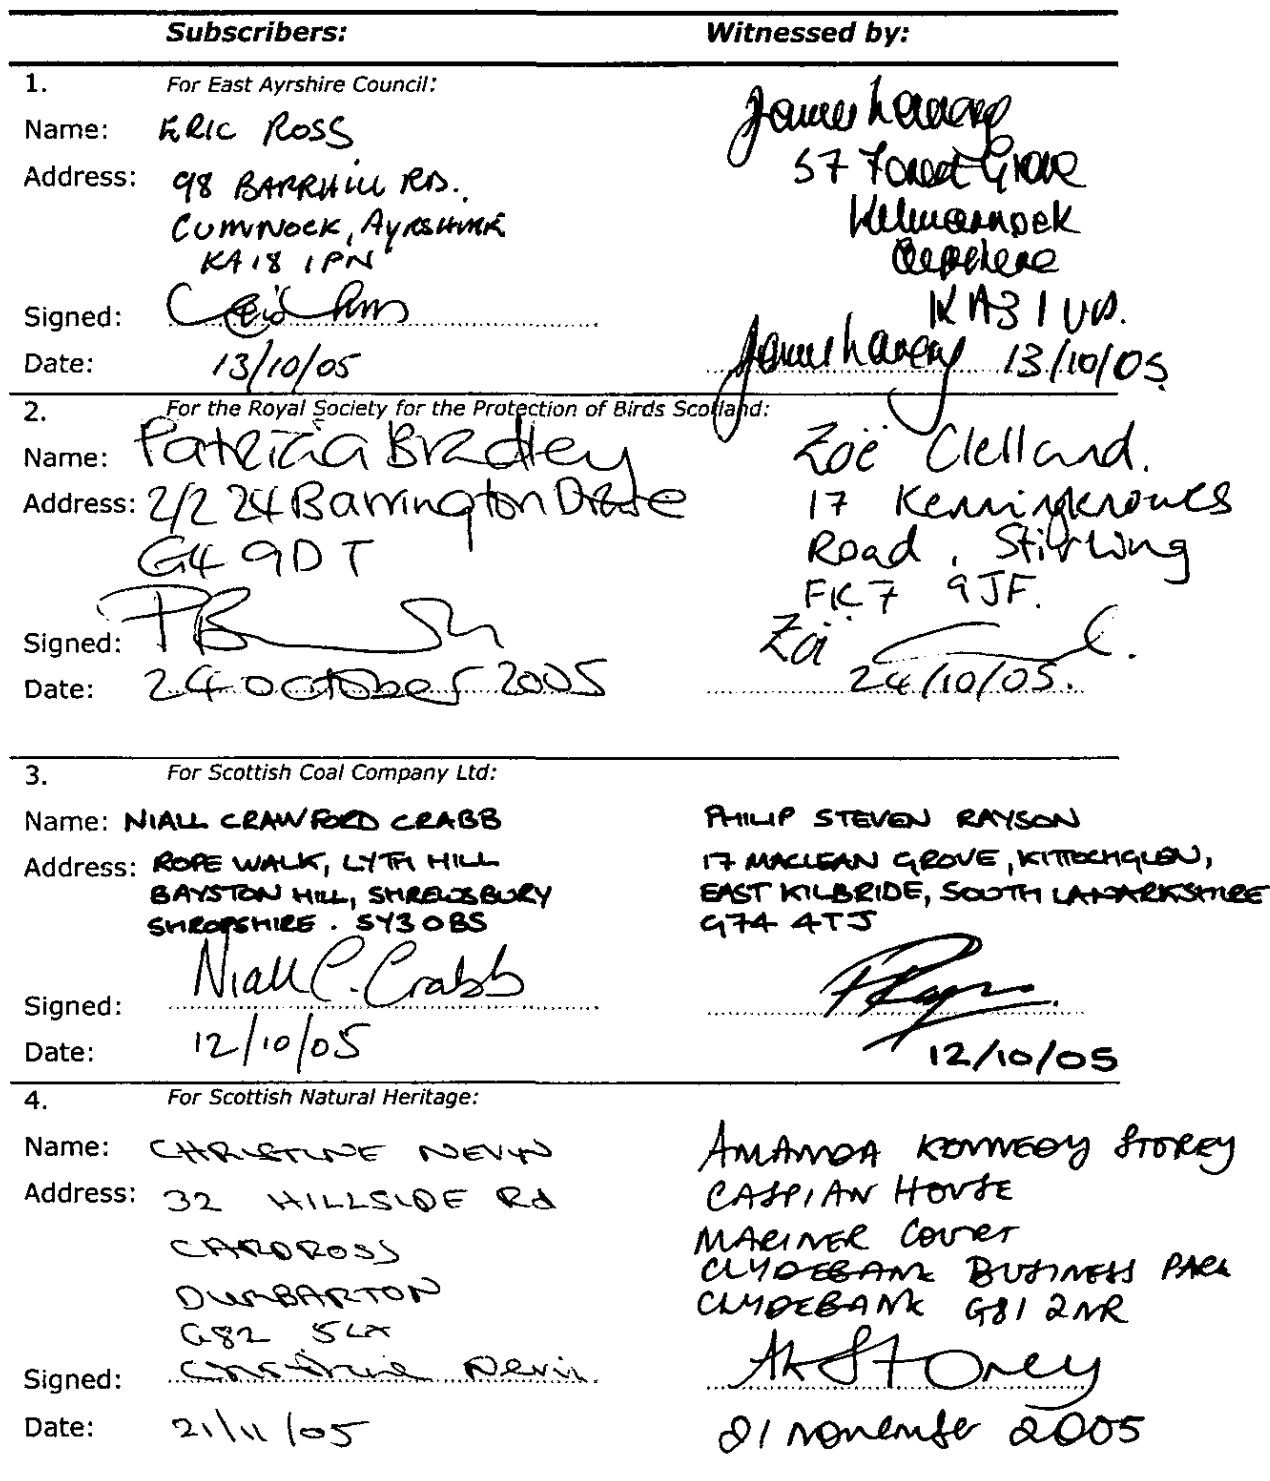 Subscribers: Witnessed by:
1. For East Ayrshire Council:
Name: ERIC ROSS
Address: 98 BARRHILL RD.
CUMNOCK, AYRSHIRE
KA18 1PN
Signed:
Date: 13/10/05
57 Forest Grove
Kilmarnock
Ayrshire
KA3 1UP.
13/10/05
2. For the Royal Society for the Protection of Birds Scotland:
Name: Patricia Bradley
Address: 2/2 24 Barrington Drive
G4 9DT
Signed:
Date: 24 October 2005
Zoë Clelland.
17 Kenningknowes
Road, Stirling
FK7 9JF.
Zoë C.
24/10/05.
3. For Scottish Coal Company Ltd:
Name: NIALL CRAWFORD CRABB
Address: ROPE WALK, LYTH HILL
BAYSTON HILL, SHREWSBURY
SHROPSHIRE. SY3 0BS
Signed: Niall C. Crabb
Date: 12/10/05
PHILIP STEVEN RAYSON
17 MACLEAN GROVE, KITTOCHGLEN,
EAST KILBRIDE, SOUTH LANARKSHIRE
G74 4TJ
12/10/05
4. For Scottish Natural Heritage:
Name: CHRISTINE NEVIN
Address: 32 HILLSIDE Rd
CARDROSS
DUMBARTON
G82 5LX
Signed: Christine Nevin
Date: 21/11/05
AMANDA KENNEDY STOREY
CASPIAN HOUSE
MARINER COURT
CLYDEBANK BUSINESS PARK
CLYDEBANK G81 2NR
AKStorey
21 November 2005